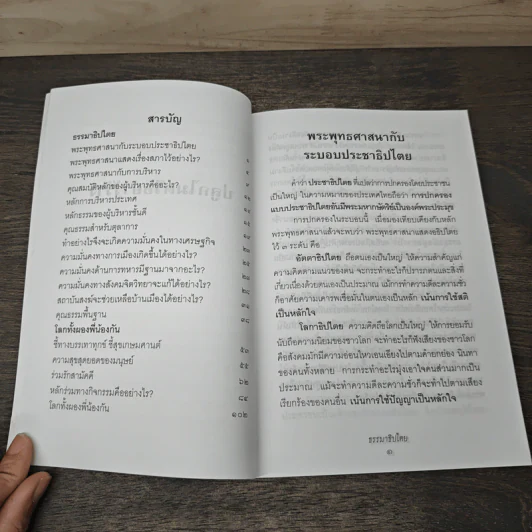 สารบัญ
ธรรมาธิปไตย
พระพุทธศาสนากับระบอบประชาธิปไตย
พระพุทธศาสนาแสดงเรื่องสภาไว้อย่างไร?
พระพุทธศาสนากับการบริหาร
คุณสมบัติหลักของผู้บริหารคืออะไร?
หลักการบริหารประเทศ
หลักธรรมของผู้บริหารชั้นดี
คุณธรรมสำหรับตุลาการ
ทำอย่างไรจึงจะเกิดความมั่นคงในทางเศรษฐกิจ
ความมั่นคงทางการเมืองเกิดขึ้นได้อย่างไร?
ความมั่นคงด้านการทหารมีฐานมาจากอะไร?
ความมั่นคงทางสังคมจิตวิทยาจะแก้ได้อย่างไร?
สถาบันสงฆ์จะช่วยเหลือบ้านเมืองได้อย่างไร?
คุณธรรมพื้นฐาน
โลกทั้งผองพี่น้องกัน
ชี้ทางบรรเทาทุกข์ ชี้สุขเกษมศานติ์ ๕๓
ความสุขสุดยอดของมนุษย์ ๕๕
ร่วมรักสามัคคี ๖๒
หลักร่วมทางกิจกรรมคืออย่างไร? ๘๔
โลกทั้งผองพี่น้องกัน ๑๐๒
พระพุทธศาสนากับ
ระบอบประชาธิปไตย
คำว่า ประชาธิปไตย ที่แปลว่าการปกครองโดยประชาชน
เป็นใหญ่ ในความหมายของประเทศไทยถือว่า การปกครอง
แบบประชาธิปไตยอันมีพระมหากษัตริย์เป็นองค์พระประมุข
การปกครองในระบอบนี้ เมื่อมองเทียบเคียงกับหลัก
พระพุทธศาสนาแล้วจะพบว่า พระพุทธศาสนาแสดงอธิปไตย
ไว้ ๓ ระดับ คือ
อัตตาธิปไตย ถือตนเองเป็นใหญ่ ให้ความสำคัญแก่
ความคิดตามแนวของตน จะกระทำอะไรก็ปรารภตนและสิ่งที่
เกี่ยวเนื่องด้วยตนเองเป็นประมาณ แม้การทำความดีละความชั่ว
ก็อาศัยความเคารพเชื่อมั่นในตนเองเป็นหลัก เน้นการใช้สติ
เป็นหลักใจ
โลกาธิปไตย ความคิดถือโลกเป็นใหญ่ ให้การยอมรับ
นับถือความนิยมของชาวโลก จะทำอะไรก็ฟังเสียงของชาวโลก
คือสังคมมักมีความอ่อนไหวเอนเอียงไปตามคำยกย่อง นินทา
ของคนทั้งหลาย การกระทำอะไรมุ่งเอาใจคนส่วนมากเป็น
ประมาณ แม้จะทำความดีละความชั่วก็จะทำไปตามเสียง
เรียกร้องของคนอื่น เน้นการใช้ปัญญาเป็นหลักใจ
ธรรมาธิปไตย
๑